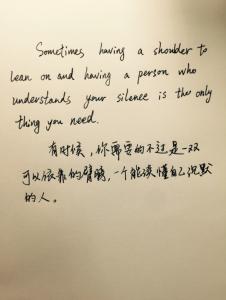 Sometimes having a shoulder to
lean on and having a person who
understands your silence is the only
thing you need.
有时候，你需要的不过是一双
可以依靠的臂膀，一个能读懂自己沉默
的人。